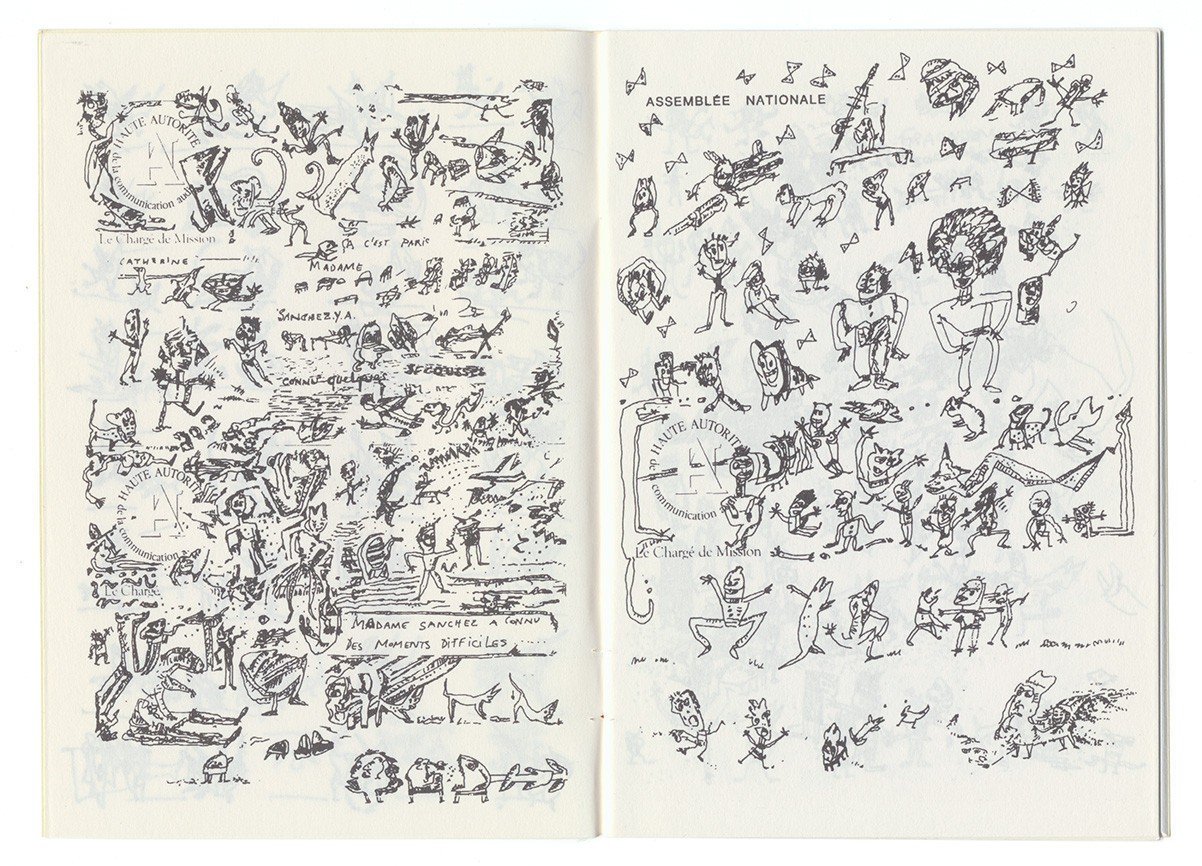 HAUTE AUTORITÉ
de la communication aud
A
Le Chargé de Mission
ÇA C'EST PARIS
CATHERINE
MADAME
SANCHEZ.Y.A.
CONNUE QUELQUES
HAUTE AUTORITÉ
de la communication
A
Le Chargé
MADAME SANCHEZ A CONNU
DES MOMENTS DIFFICILES
ASSEMBLÉE NATIONALE
de HAUTE AUTORITÉ
communication
A
Le Chargé de Mission